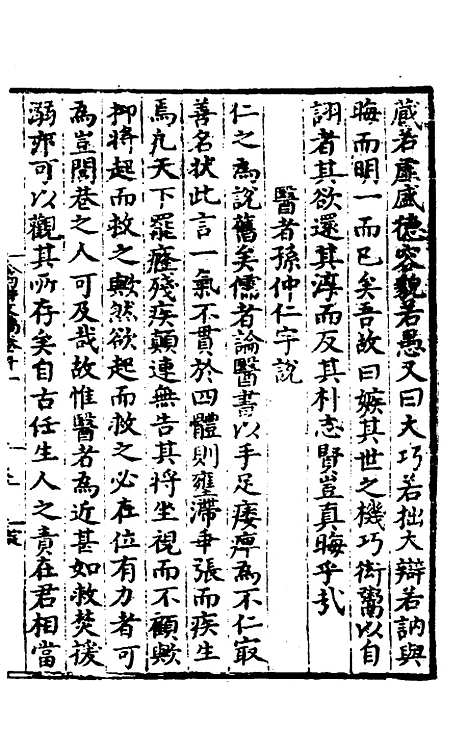 藏若虛盛德容貌若愚又曰大巧若拙大辯若訥與
晦而明一而已矣吾故曰嫉其世之機巧衒鬻以自
詡者其欲還其淳而反其朴志賢豈真晦乎㢤
醫者孫仲仁字說
仁之為說舊矣儒者論醫書以手足痿痹為不仁㝡
善名状此言一氣不貫於四體則壅滯乖張而疾生
焉凢天下罷癃殘疾顛連無告其將坐視而不顧歟
抑將起而救之歟然欲起而救之必在位有力者可
為豈閭巷之人可及哉故惟醫者為近甚如救焚援
溺亦可以觀其所存矣自古任生人之責在君相當